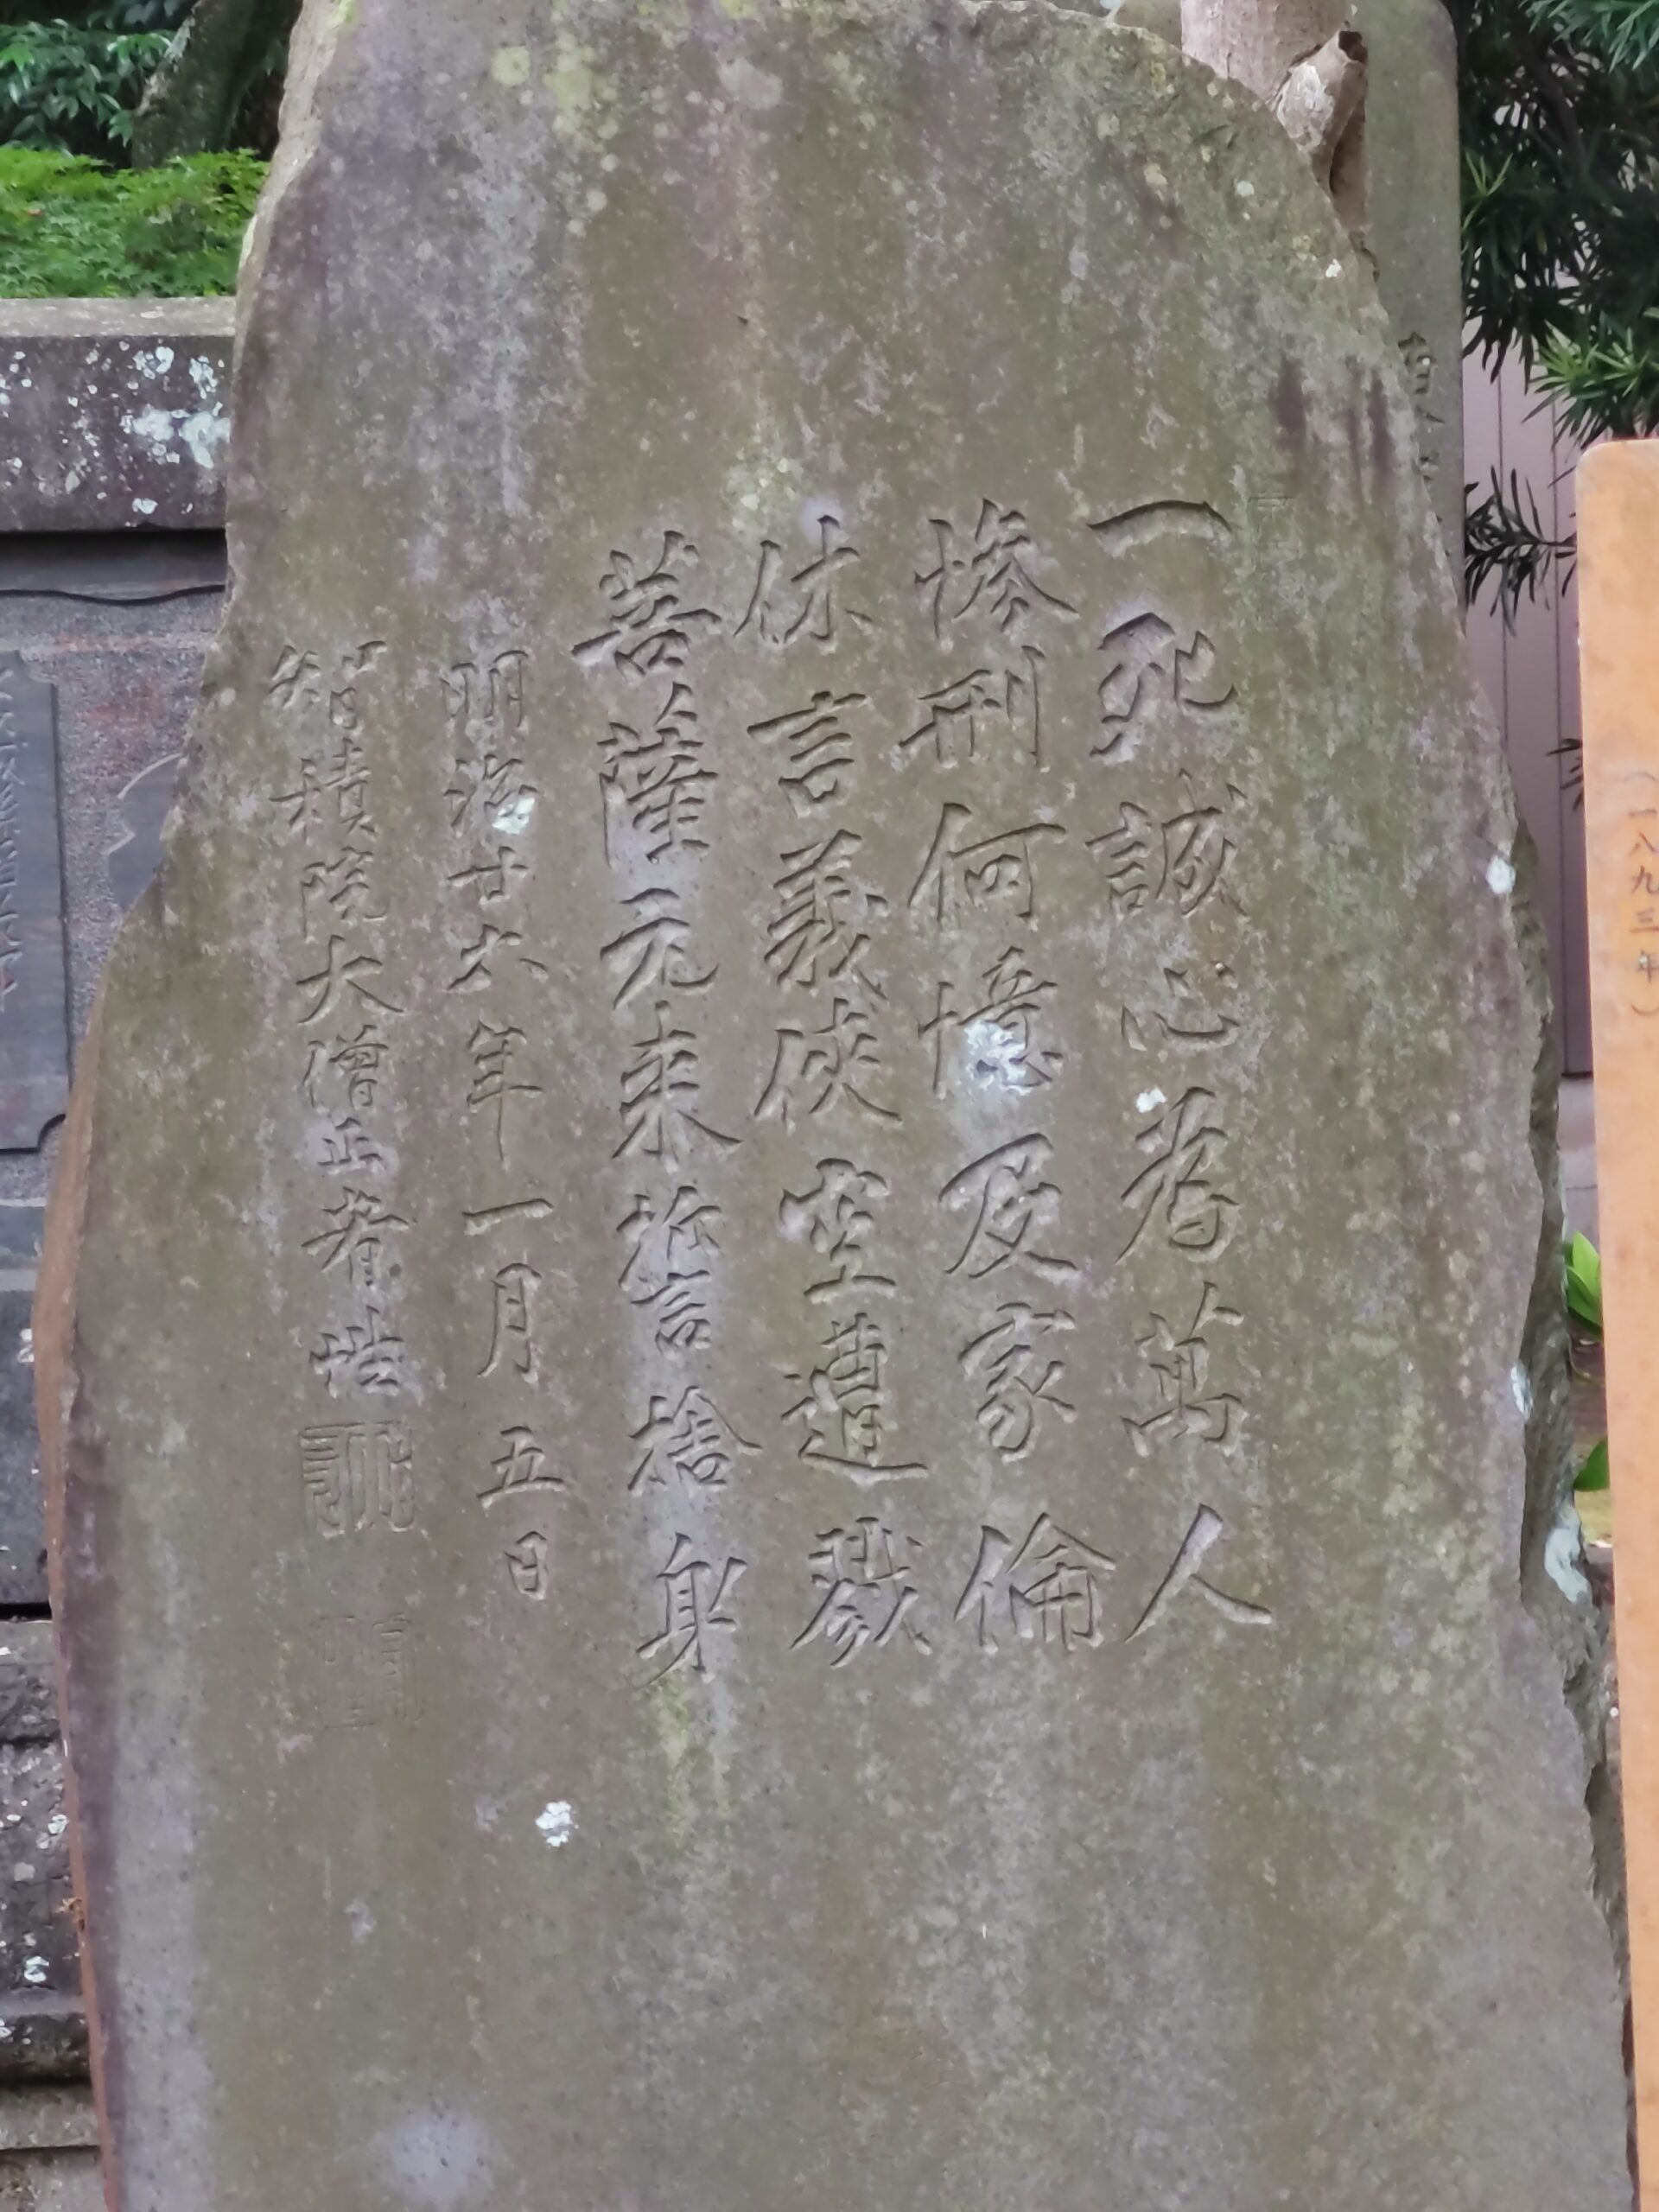 一死誠心為萬人
惨刑何憶及家倫
休言義侠空遭戮
菩薩元来誓捨身
明治廿六年一月五日
智積院大僧正
(一八九三年)